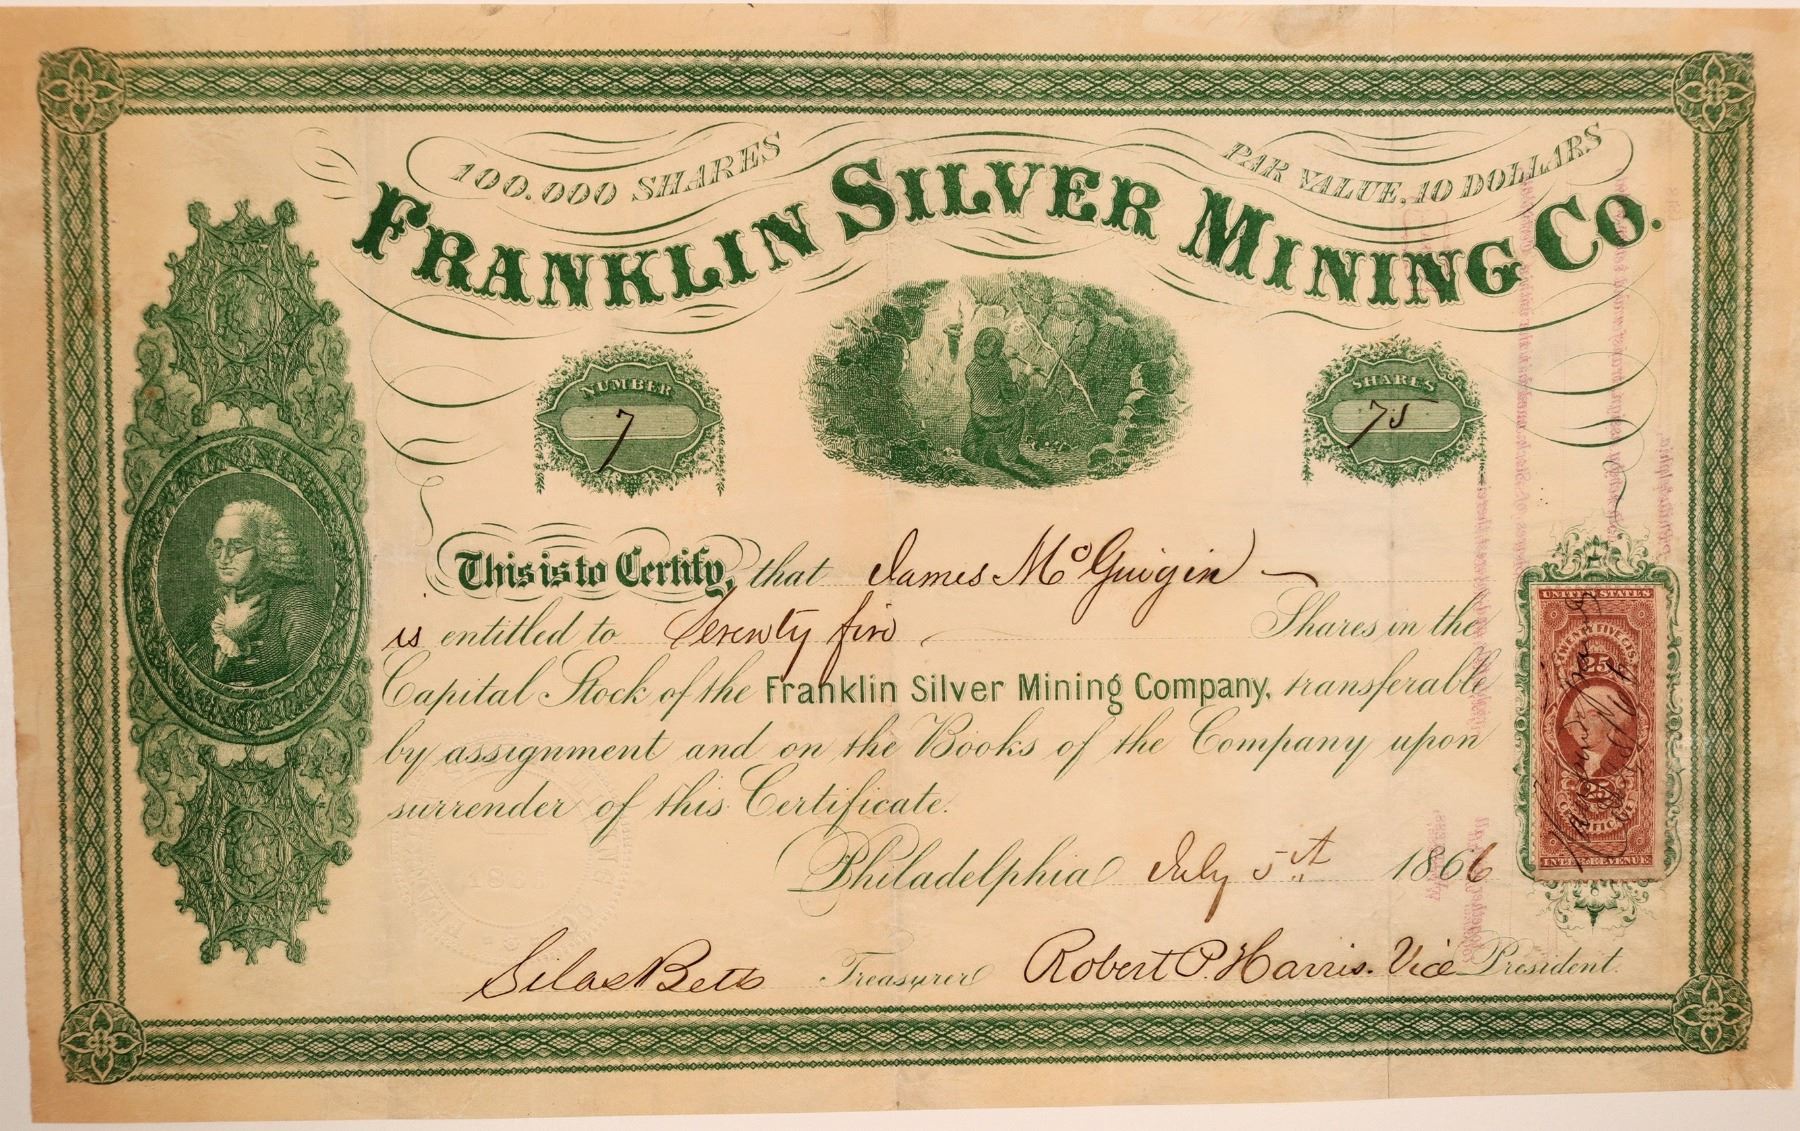 100.000 SHARES
PAR VALUE, 10 DOLLARS
FRANKLIN SILVER MINING CO.
NUMBER
7
SHARES
75
This is to Certify, that James McGuigin
is entitled to Seventy five Shares in the
Capital Stock of the Franklin Silver Mining Company, transferable
by assignment and on the Books of the Company upon
surrender of this Certificate.
Philadelphia July 5th 1866
Silas Betts Treasurer Robert P. Harris. Vice President.
UNITED STATES
TWENTY FIVE CTS.
25
CERTIFICATE
INTER. REVENUE